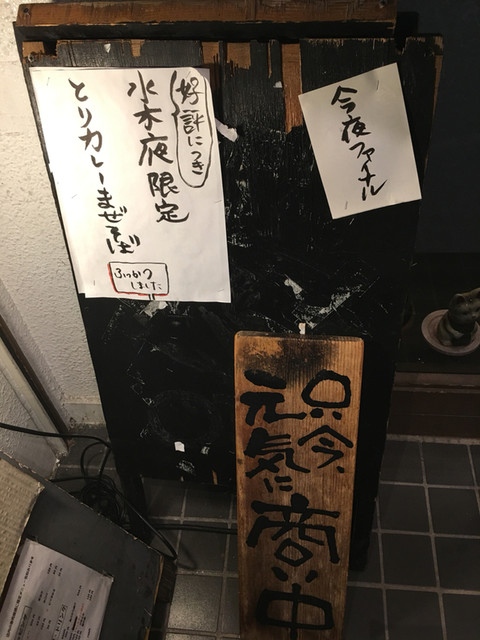 好評につき
水木夜限定
とりカレーまぜそば
ふっかつ
しました
今夜ファイナル
只今、
元気に
商い中